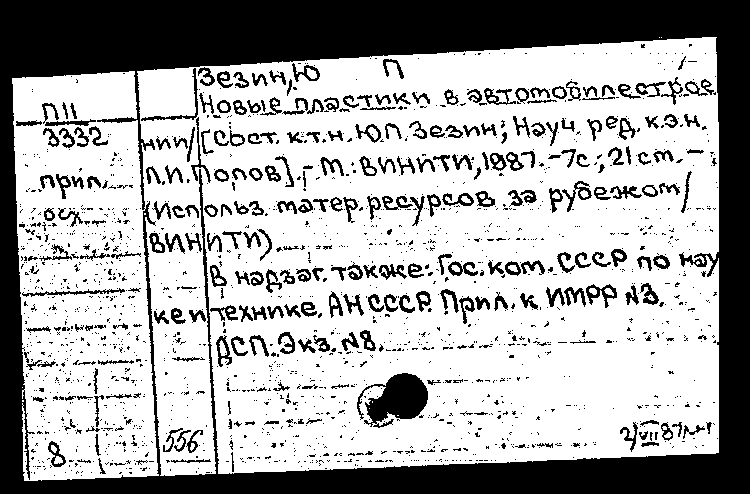 Зезин, Ю П
П11 Новые пластики в автомобилестрое
3332 нии/[Сост. к.т.н. Ю.П. Зезин; Науч. ред. к.э.н.
прил. Л.И. Попов]. - М.: ВИНИТИ, 1987. - 7с.; 21 ст. -
осх (Использ. матер. ресурсов за рубежом/
ВИНИТИ).
В надзаг. также: Гос. ком. СССР по нау
ке и технике. АН СССР. Прил. к ИМРР №3.
ДСП. Экз. №8.
8 556 2/VII 87